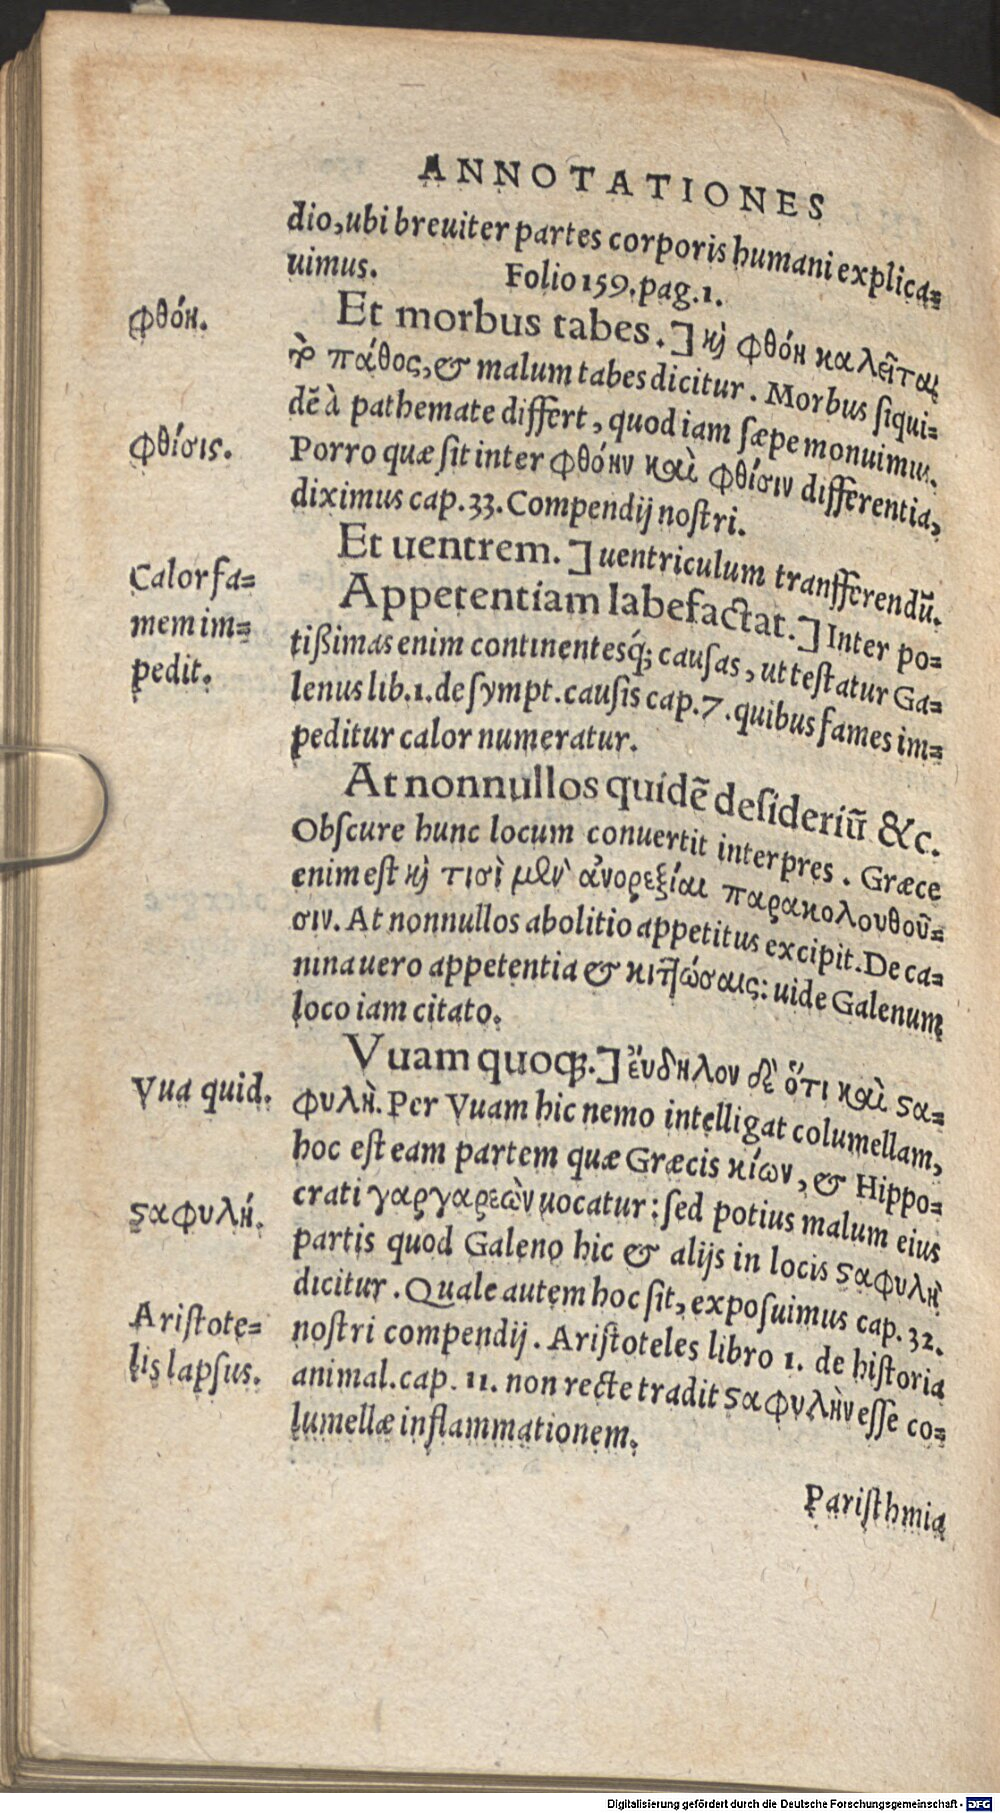 ANNOTATIONES
dio, ubi breuiter partes corporis humani explica=
uimus. Folio 159. pag. 1.
Et morbus tabes.] καὶ φθόη καλεῖται
φθόη.
τὸ πάθος, & malum tabes dicitur. Morbus siqui=
dē à pathemate differt, quod iam sæpe monuimus.
φθίσις.
Porro quæ sit inter φθόην καὶ φθίσιν differentia,
diximus cap. 33. Compendij nostri.
Et uentrem.] uentriculum transfferendū.
Calor fa=
mem im=
pedit.
Appetentiam labefactat.] Inter po=
tißimas enim continentesq́; causas, ut testatur Ga=
lenus lib. 1. de sympt. causis cap. 7. quibus fames im=
peditur calor numeratur.
At nonnullos quidē desideriū &c.
Obscure hunc locum conuertit interpres. Græce
enim est καὶ τισὶ μὲν ἀνορεξίαι παρακολουθοῦ=
σιν. At nonnullos abolitio appetitus excipit. De ca=
nina uero appetentia & κιττώσαις: uide Galenum
loco iam citato.
Vuam quoq;.] ἔυδηλον δὲ ὅτι καὶ ϛα=
Vua quid.
φυλὴ. Per Vuam hic nemo intelligat columellam,
hoc est eam partem quæ Græcis κίων, & Hippo=
crati γαργαρεὼν uocatur: sed potius malum eius
ϛαφυλή.
partis quod Galeno hic & alijs in locis ϛαφυλὴ
dicitur. Quale autem hoc sit, exposuimus cap. 32.
Aristote=
lis lapsus.
nostri compendij. Aristoteles libro 1. de historia
animal. cap. 11. non recte tradit ϛαφυλὴν esse co=
lumellæ inflammationem.
Paristhmia
Digitalisierung gefördert durch die Deutsche Forschungsgemeinschaft - DFG